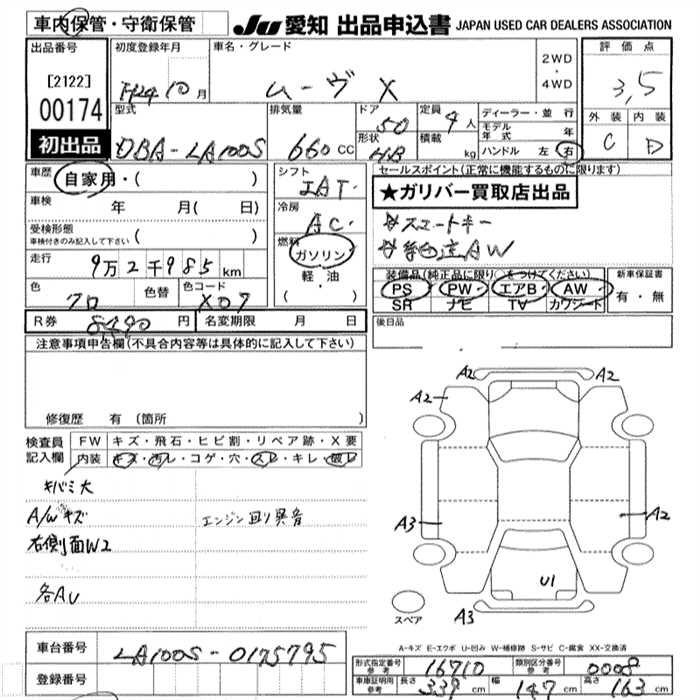 車内保管・守衛保管
JU 愛知 出品申込書 JAPAN USED CAR DEALERS ASSOCIATION
出品番号
[2122]
00174
初出品
初度登録年月
H24 10 月
車名・グレード
ムーヴ X
2WD
・
4WD
評価点
3,5
外装 内装
C D
型式
DBA-LA100S
排気量
660 cc
ドア
5D
形状
HB
定員
4 人
積載
kg
ディーラー・並 行
モデル年式 年
ハンドル 左 右
車歴
自家用・( )
車検 年 月( 日)
受検形態
車検付きのみ記入して下さい ( )
走行
9万2千985 km
色
クロ
色替
色コード
X07
シフト
IAT
冷房
AC
燃料
ガソリン
軽・油
( )
セールスポイント(正常に機能するものに限ります)
★ガリバー買取店出品
#スマートキー
装備品(純正品に限り○をつけてください)
PS PW エアB AW
SR ナビ TV カワシート
新車保証書
有・無
R券 8490 円
名変期限 月 日
後日品
注意事項申告欄(不具合内容等は具体的に記入して下さい)
修復歴 有 (箇所 )
検査員
記入欄
FW キズ・飛石・ヒビ割・リペア跡・X要
内装 キズ・汚レ・コゲ・穴・スレ・キレ・破レ
キバミ大
A/Wキズ
エンジン回り異音
右側面W2
各AU
A2
A2
A2
A3
A2
U1
A3
スペア
A-キズ E-エクボ U-凹み W-補修跡 S-サビ C-腐食 XX-交換済
車台番号
LA100S-0175795
登録番号
形式指定番号
参考
16710
類別区分番号
参考
0008
車庫証明用
参考
長さ 339 cm
幅 147 cm
高さ 163 cm